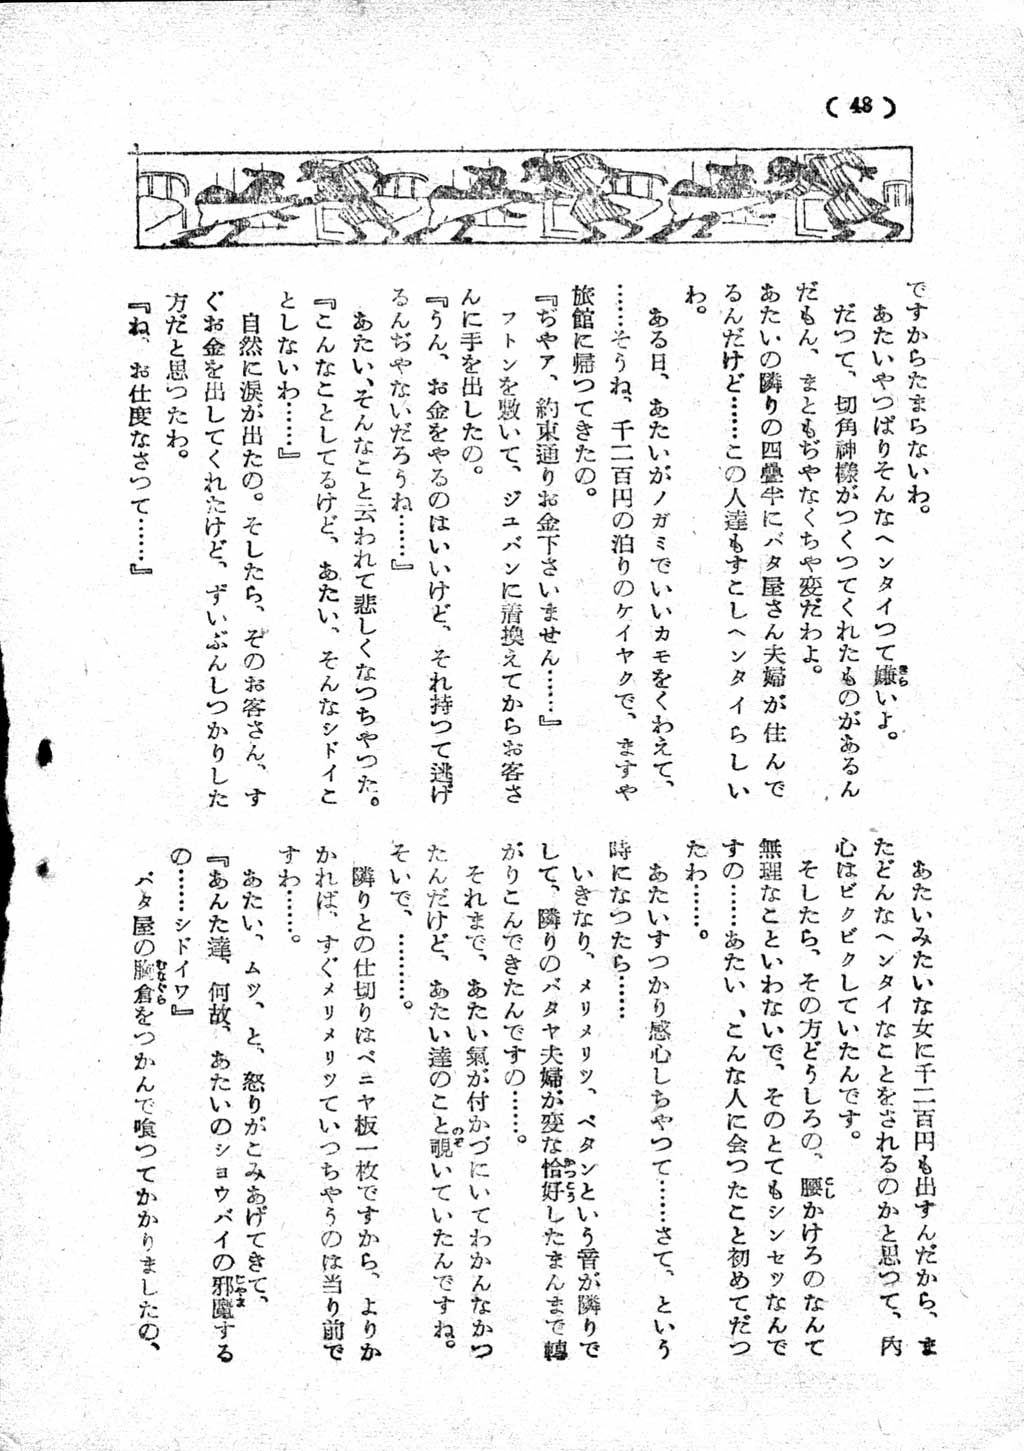 ( 48 )
ですからたまらないわ。
あたいやつぱりそんなヘンタイつて嫌いよ。
だつて、切角神様がつくつてくれたものがあるん
だもん、まともぢやなくちや変だわよ。
あたいの隣りの四疊半にバタ屋さん夫婦が住んで
るんだけど……この人達もすこしヘンタイらしい
わ。
ある日、あたいがノガミでいいカモをくわえて、
……そうね、千二百円の泊りのケイヤクで、ますや
旅館に帰つてきたの。
『ぢやァ、約束通りお金下さいません……』
フトンを敷いて、ジユバンに着換えてからお客さ
んに手を出したの。
『うん、お金をやるのはいいけど、それ持つて逃げ
るんぢやないだろうね……』
あたい、そんなこと云われて悲しくなつちやつた。
『こんなことしてるけど、あたい、そんなシドイこ
としないわ……』
自然に涙が出たの。そしたら、そのお客さん、す
ぐお金を出してくれたけど、ずいぶんしつかりした
方だと思つたわ。
『ね、お仕度なさつて……』
あたいみたいな女に千二百円も出すんだから、ま
たどんなヘンタイなことをされるのかと思つて、内
心はビクビクしていたんです。
そしたら、その方どうしろの、腰かけろのなんて
無理なこといわないで、そのとてもシンセツなんで
すの……あたい、こんな人に会つたこと初めてだつ
たわ……。
あたいすつかり感心しちやつて……さて、という
時になつたら……
いきなり、メリメリツ、ベタンという音が隣りで
して、隣りのバタヤ夫婦が変な恰好したまんまで轉
がりこんできたんですの……。
それまで、あたい氣が付かづにいてわかんなかつ
たんだけど、あたい達のこと覗いていたんですね。
そいで、………。
隣りとの仕切りはベニヤ板一枚ですから、よりか
かれば、すぐメリメリツていつちやうのは当り前で
すわ……。
あたい、ムツ、と、怒りがこみあげてきて、
『あんた達、何故、あたいのショウバイの邪魔する
の……シドイワ』
バタ屋の胸倉をつかんで喰つてかかりましたの、